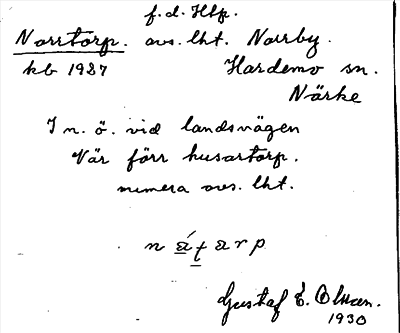 f.d. Htp.
Norrtorp. avs. lht. Norrby.
kb 1927 Hardemo sn.
Närke
I n. ö. vid landsvägen
Vär förr husartorp.
numera avs. lht.
Gustaf E.
1930